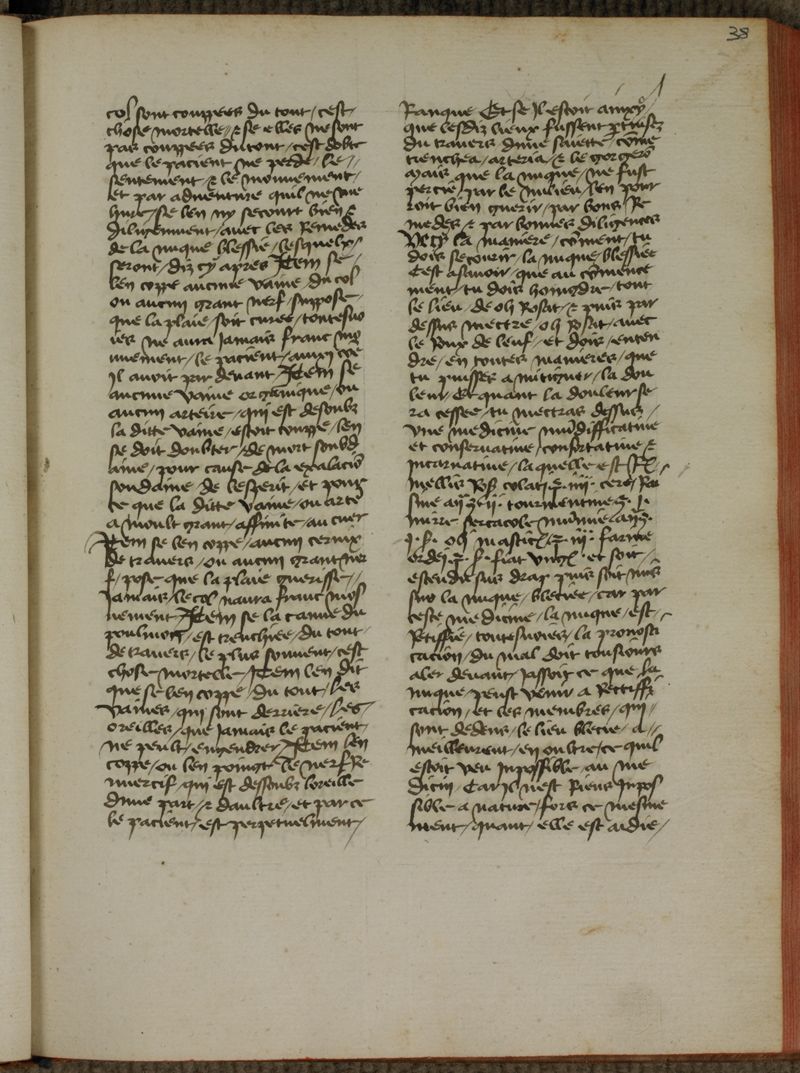 38
col sont couppees du tout / cest
chose mortelle / & se elles ne sont
pas couppees du tout / cest dobte
que le pacient ne perde / le
sentement & le mouuement /
et par aduenture quil ne me
hure / se len ny secourt bien &
diligenment / auec les Remedes
de la nuque blessie / lesquelx /
seront / diz cy apres Item se
len coppe aucune vaine / du col
ou aucun grant nerf / suppose
que la plaie / soit curee / toutesuo
ies / ne aura Jamais franc mo
uuement / le pacient / aincy come
il auoit par deuant Item se
aucune vaine organique / ou
aucun artere / qui est desoubz
la ditte vaine / estoit couppe / len
se doit doubter / de mort soubd
aine / pour cause de la exalacion
soudaine / de lesperit / et pour
ce que la ditte vaine / ou arte
a moult grant / affinite / au cuer
Item se len coppe / aucun ceruix
de trauers / ou aucun grant ner
f / pose que la plaie guerisse /
Jamais / le col naura franc mou
uement / Item se la canne du
poulmon / est trenchiee / du tout
de trauers / le plus souuent / cest
chose mortelle / Item len dit
que se len coppe / du tout / les
vaines / qui sont derriere / les
oreilles / que Jamais le pacient
ne peult / engendrer Item len
coppe / ou len poingt le nerf Re
uuersif / qui est dessoubz loreille
dune part / & daultre / et par ce
le pacient / est perpetuelment /
Ranque Et se Il estoit aincy /
que lesdiz lieux fussent perciez
du trauers dune saiette / come
trenchea / arteria / & le gorgeron
mais que la nuque / ne fust
percie / par le milieu / len pour
roit bien guerir / par bons Re
medes / & par bonnes diligences
Vecy la maniere / coment / tu
dois secourir / la nuque / blessiee
Cest assauoir / que au commence
ment / tu dois hoingdre / tout
le lieu / de oli Rosat / & puis par
dessus mectre / oli Rosat / auec
le Roux de leuf / et dois / enten
dre / en toutes manieres / que
tu puisses amitiguer / la dou
leur / Et quant la douleur se
ra cessee / tu mectras dessus /
vne medicine mundifficatiue
et conseruatiue / confortatiue &
incarnatiue / laquelle est Rx
mellis Ros. colati ℥ iiij. cere / Re
sine añ ℥ ii. tourmentine ℥ i.
mirre sercacole mumie añ ℥.
i. s. oli masticis ℥ iij. farine
ordei ℥ s. fiat vngt. et soit
estendu sus drap puis soit mis
suo la nuque / bleciee / car par
ceste medicine / la nuque / est
Rctiffie / toutesuoies / la pronosti
cacion / du mal doit tousiours
aler deuant / Jassoit ce que la
nuque / peust venir a Rectiffi
cacion / et les membres / qui
sont dedens / le lieu blecie / a
meilleurent / en oultre / ce quil
estoit veu Inpossible / au me
dicin / Car Il nest Riens Inpos
sible a nature / fors ce mesme
ment / quant / elle est aidie /